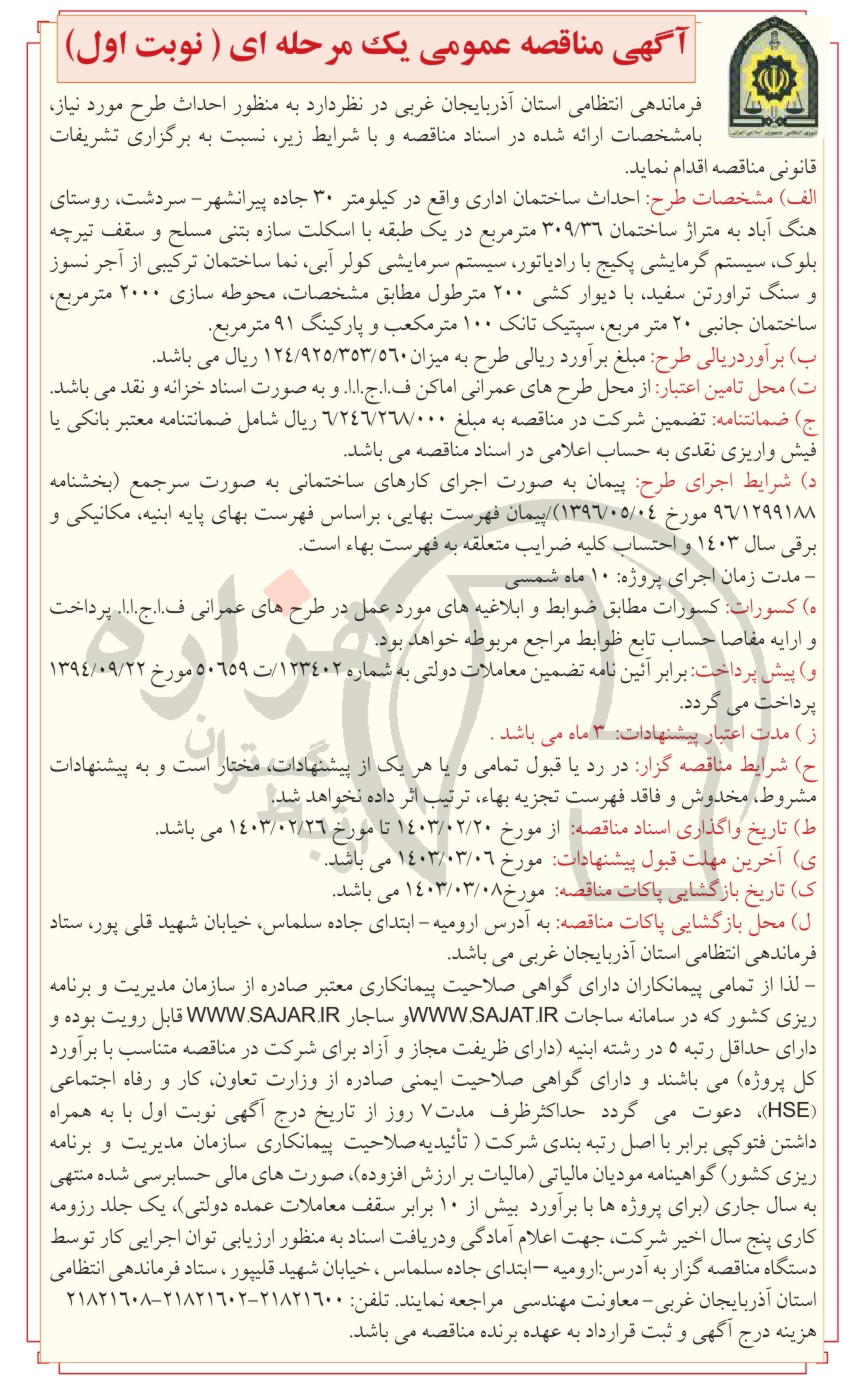 آگهی مناقصه عمومی یک مرحله ای ( نوبت اول)
فرماندهی انتظامی استان آذربایجان غربی در نظردارد به منظور احداث طرح مورد نیاز،
بامشخصات ارائه شده در اسناد مناقصه و با شرایط زیر، نسبت به برگزاری تشریفات
قانونی مناقصه اقدام نماید.
الف) مشخصات طرح: احداث ساختمان اداری واقع در کیلومتر ۳۰ جاده پیرانشهر– سردشت، روستای
هنگ آباد به متراژ ساختمان ۳۰۹/۳۶ مترمربع در یک طبقه با اسکلت سازه بتنی مسلح و سقف تیرچه
بلوک، سیستم گرمایشی پکیج با رادیاتور، سیستم سرمایشی کولر آبی، نما ساختمان ترکیبی از آجر نسوز
و سنگ تراورتن سفید، با دیوار کشی ۲۰۰ مترطول مطابق مشخصات، محوطه سازی ۲۰۰۰ مترمربع،
ساختمان جانبی ۲۰ متر مربع، سپتیک تانک ۱۰۰ مترمکعب و پارکینگ ۹۱ مترمربع.
ب) برآوردریالی طرح: مبلغ برآورد ریالی طرح به میزان۱۲٤/۹۲۵/۳۵۳/۵۶۰ ریال می باشد.
ت) محل تامین اعتبار: از محل طرح های عمرانی اماکن ف.ا.ج.ا.ا. و به صورت اسناد خزانه و نقد می باشد.
ج) ضمانتنامه: تضمین شرکت در مناقصه به مبلغ ۶/۲٤۶/۲۶۸/۰۰۰ ریال شامل ضمانتنامه معتبر بانکی یا
فیش واریزی نقدی به حساب اعلامی در اسناد مناقصه می باشد.
د) شرایط اجرای طرح: پیمان به صورت اجرای کارهای ساختمانی به صورت سرجمع (بخشنامه
۹۶/۱۲۹۹۱۸۸ مورخ ۱۳۹۶/۰۵/۰٤)/پیمان فهرست بهایی، براساس فهرست بهای پایه ابنیه، مکانیکی و
برقی سال ۱٤۰۳ و احتساب کلیه ضرایب متعلقه به فهرست بهاء است.
– مدت زمان اجرای پروژه: ۱۰ ماه شمسی
ه) کسورات: کسورات مطابق ضوابط و ابلاغیه های مورد عمل در طرح های عمرانی ف.ا.ج.ا.ا. پرداخت
و ارایه مفاصا حساب تابع ظوابط مراجع مربوطه خواهد بود.
و) پیش پرداخت: برابر آئین نامه تضمین معاملات دولتی به شماره ۱۲۳٤۰۲/ت ۵۰۶۵۹ مورخ ۱۳۹٤/۰۹/۲۲
پرداخت می گردد.
ز ) مدت اعتبار پیشنهادات: ۳ ماه می باشد .
ح) شرایط مناقصه گزار: در رد یا قبول تمامی و یا هر یک از پیشنهادات، مختار است و به پیشنهادات
مشروط، مخدوش و فاقد فهرست تجزیه بهاء، ترتیب اثر داده نخواهد شد.
ط) تاریخ واگذاری اسناد مناقصه: از مورخ ۱٤۰۳/۰۲/۲۰ تا مورخ ۱٤۰۳/۰۲/۲۶ می باشد.
ی) آخرین مهلت قبول پیشنهادات: مورخ ۱٤۰۳/۰۳/۰۶ می باشد.
ک) تاریخ بازگشایی پاکات مناقصه: مورخ۱٤۰۳/۰۳/۰۸ می باشد.
ل) محل بازگشایی پاکات مناقصه: به آدرس ارومیه – ابتدای جاده سلماس، خیابان شهید قلی پور، ستاد
فرماندهی انتظامی استان آذربایجان غربی می باشد.
– لذا از تمامی پیمانکاران دارای گواهی صلاحیت پیمانکاری معتبر صادره از سازمان مدیریت و برنامه
ریزی کشور که در سامانه ساجات WWW.SAJAT.IRو ساجار WWW.SAJAR.IR قابل رویت بوده و
دارای حداقل رتبه ۵ در رشته ابنیه (دارای ظریفت مجاز و آزاد برای شرکت در مناقصه متناسب با برآورد
کل پروژه) می باشند و دارای گواهی صلاحیت ایمنی صادره از وزارت تعاون، کار و رفاه اجتماعی
(HSE)، دعوت می گردد حداکثرظرف مدت۷ روز از تاریخ درج آگهی نوبت اول با به همراه
داشتن فتوکپی برابر با اصل رتبه بندی شرکت ( تأئیدیه صلاحیت پیمانکاری سازمان مدیریت و برنامه
ریزی کشور) گواهینامه مودیان مالیاتی (مالیات بر ارزش افزوده)، صورت های مالی حسابرسی شده منتهی
به سال جاری (برای پروژه ها با برآورد بیش از ۱۰ برابر سقف معاملات عمده دولتی)، یک جلد رزومه
کاری پنج سال اخیر شرکت، جهت اعلام آمادگی ودریافت اسناد به منظور ارزیابی توان اجرایی کار توسط
دستگاه مناقصه گزار به آدرس:ارومیه –ابتدای جاده سلماس ، خیابان شهید قلیپور ، ستاد فرماندهی انتظامی
استان آذربایجان غربی– معاونت مهندسی مراجعه نمایند. تلفن: ۲۱۸۲۱۶۰۰–۲۱۸۲۱۶۰۲–۲۱۸۲۱۶۰۸
هزینه درج آگهی و ثبت قرارداد به عهده برنده مناقصه می باشد.
هزاره